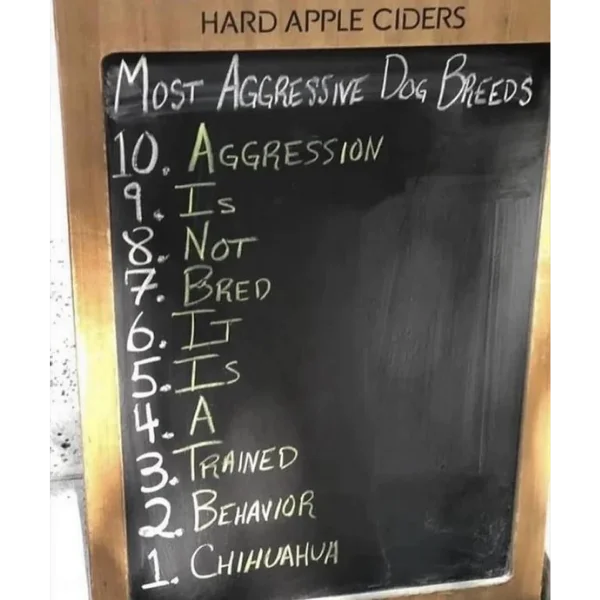 HARD APPLE CIDERS
MOST AGGRESSIVE DOG BREEDS
10. AGGRESSION
9. IS
8. NOT
7. BRED
6. IT
5. IS
4. A
3. TRAINED
2. BEHAVIOR
1. CHIHUAHUA